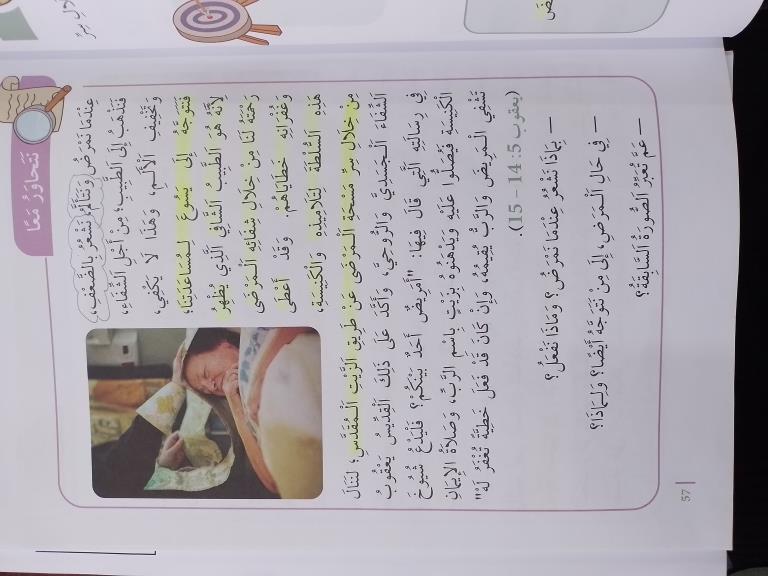 نَتَحاوَرُ مَعًا
عِنْدَما نَمْرَضُ وَنَتَأَلَّمُ، نَشْعُرُ بِالضَّعْفِ،
فَنَذْهَبُ إِلَى الطَّبِيبِ، مِنْ أَجْلِ الشِّفَاءِ،
وَتَخْفِيفِ الْأَلَمِ، وَهَذَا لَا يَكْفِي،
فَنَتَوَجَّهُ إِلَى يَسُوعَ لِـمُسَاعَدَتِنَا؛
لِأَنَّهُ هُوَ الطَّبِيبُ الشَّافِي الَّذِي يُظْهِرُ
رَحْمَتَهُ لَنَا مِنْ خِلَالِ شِفَائِهِ الْـمَرْضَى
وَغُفْرَانِهِ خَطَايَاهُمْ. وَقَدْ أَعْطَى
هَذِهِ السُّلْطَةَ لِتَلَامِيذِهِ وَالْكَنِيسَةِ،
مِنْ خِلَالِ سِرِّ مَسْحَةِ الْـمَرْضَى عَنْ طَرِيقِ الزَّيْتِ الْـمُقَدَّسِ؛ لِنَنَالَ
الشِّفَاءَ الْـجَسَدِيَّ وَالرُّوحِيَّ، وَأَكَّدَ عَلَى ذَلِكَ الْقِدِّيسُ يَعْقُوبُ
فِي رِسَالَتِهِ الَّتِي قَالَ فِيهَا: "أَمَرِيضٌ أَحَدٌ بَيْنَكُمْ؟ فَلْيَدْعُ شُيُوخَ
الْكَنِيسَةِ فَيُصَلُّوا عَلَيْهِ وَيَدْهُنُوهُ بِزَيْتٍ بِاسْمِ الرَّبِّ، وَصَلَاةُ الْإِيمَانِ
تَشْفِي الْـمَرِيضَ وَالرَّبُّ يُقِيمُهُ، وَإِنْ كَانَ قَدْ فَعَلَ خَطِيَّةً تُغْفَرُ لَهُ"
(يعقوب 5: 14 – 15).
– بِمَاذَا نَشْعُرُ عِنْدَمَا نَمْرَضُ؟ وَمَاذَا نَفْعَلُ؟
– فِي حَالِ الْـمَرَضِ، إِلَى مَنْ نَتَوَجَّهُ أَيْضًا؟ وَلِـمَاذَا؟
– عَمَّ تُعَبِّرُ الصُّورَةُ السَّابِقَةُ؟
57